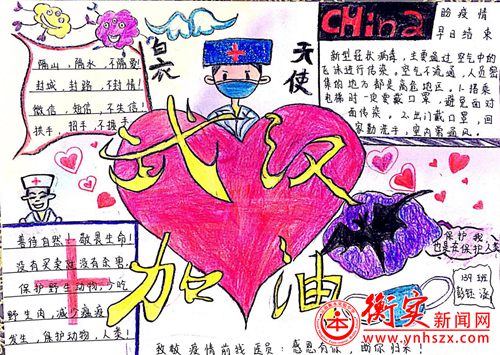 China
盼疫情
早日结束
白衣
天使
隔山，隔水，不隔爱！
封城，封路，不封情！
微信，短信，不生信！
拱手，招手，不握手。
新型冠状病毒，主要通过空气中的
飞沫进行传染，空气不流通，人员密
集的地方都是高危地区。1.搭乘
电梯时一定要戴口罩，避免面对
面传染。2.出门戴口罩，回
家勤洗手，室内常通风。
武汉
加油
善待自然，敬畏生命！
没有买卖就没有杀害
保护野生动物，少吃
野生肉，减少瘟疫
发生，保护动物，人类！
保护我，
也是在保护人类
139班
致敬疫情前线医员：感恩有你，盼你归来！
衡实新闻网
www.ynhszx.com